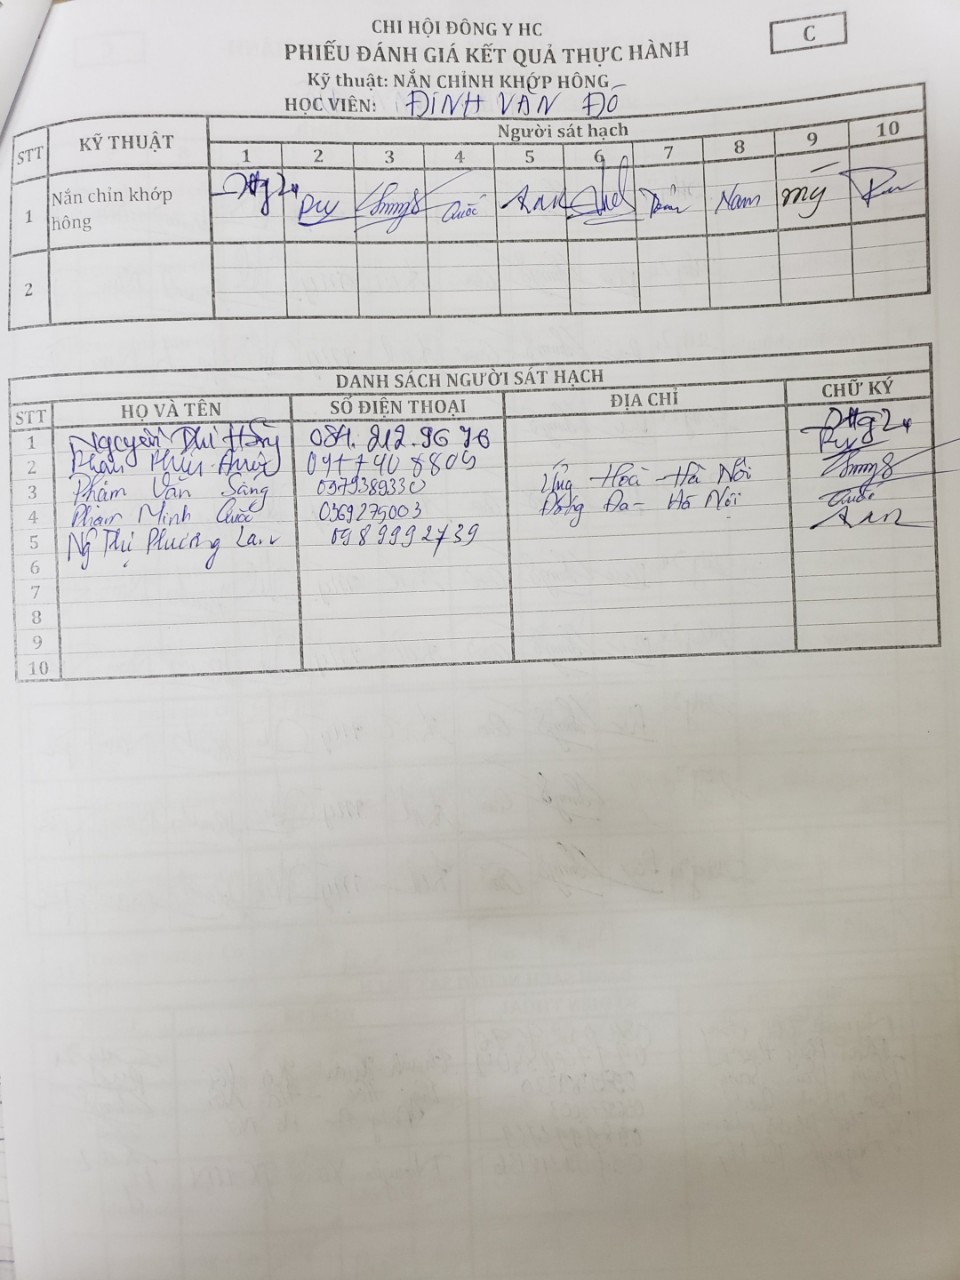 CHI HỘI ĐÔNG Y HC
C
PHIẾU ĐÁNH GIÁ KẾT QUẢ THỰC HÀNH
Kỹ thuật: NẮN CHỈNH KHỚP HÔNG
HỌC VIÊN: ĐINH VĂN ĐÔ
STT KỸ THUẬT Người sát hạch
1 2 3 4 5 6 7 8 9 10
1 Nắn chỉn khớp hông Duy Quốc Lan Nam Mý
2
DANH SÁCH NGƯỜI SÁT HẠCH
STT HỌ VÀ TÊN SỐ ĐIỆN THOẠI ĐỊA CHỈ CHỮ KÝ
1 Nguyễn Thị Hồng 084.212.9676
2 Phan
3 Phạm Văn Sáng 0979389330 Ứng Hoà - Hà Nội
4 Phạm Minh Quốc 0369275003 Đống Đa - Hà Nội Quốc
5 Ngô Thị Phương Lan 0989992739 Lan
6
7
8
9
10